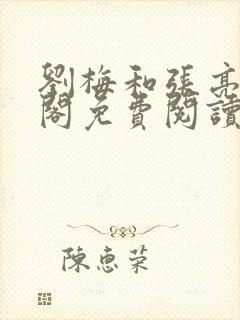 劉梅和張亮
閣免費閱讀
陳惠荣